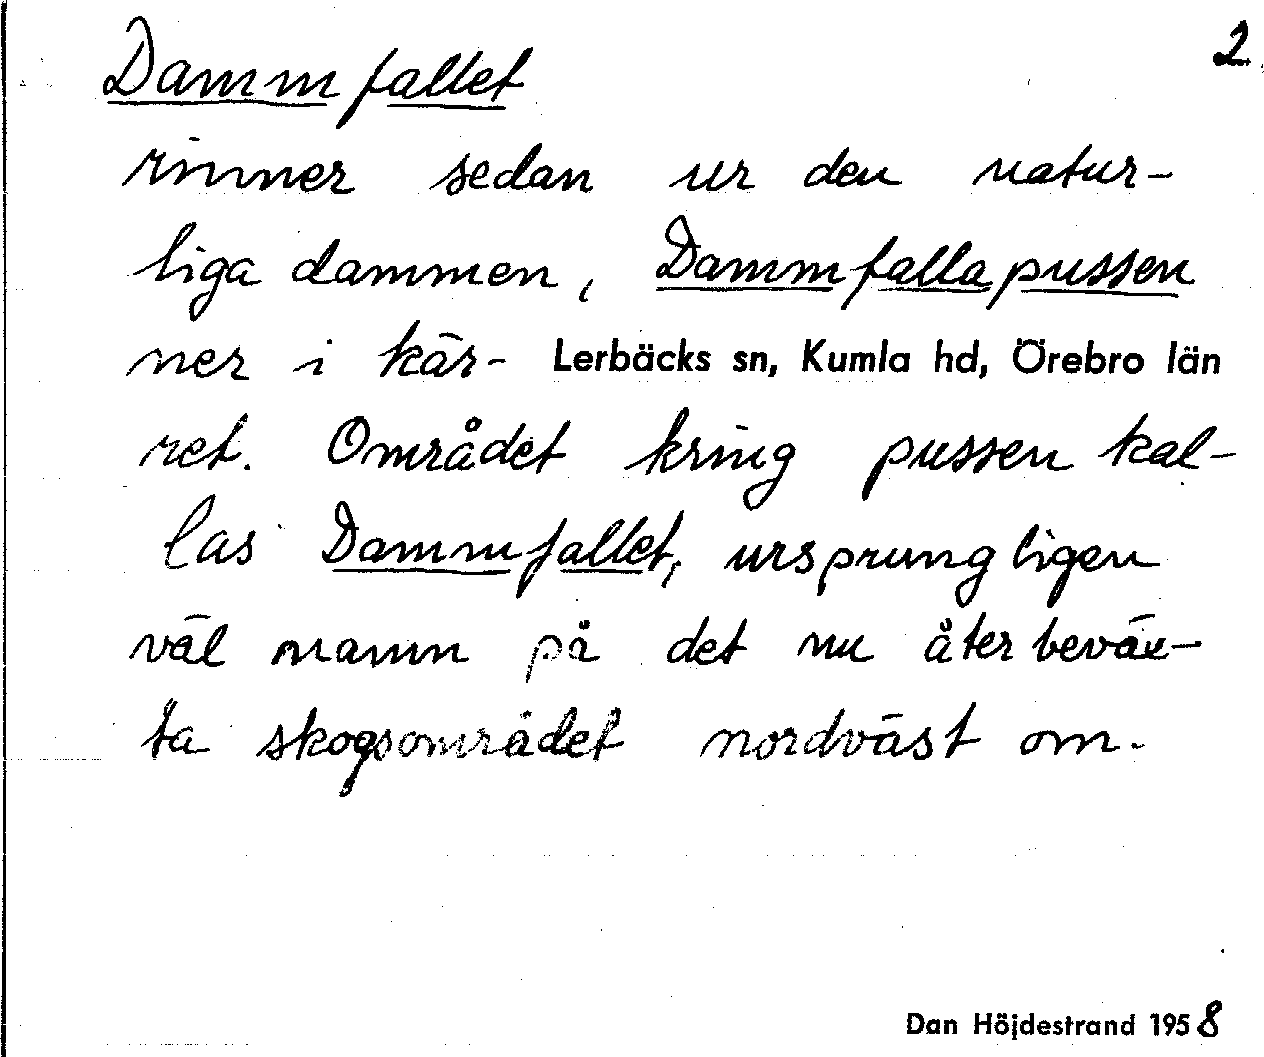 2.
Dammfallet
rinner sedan ur den natur-
liga dammen, Dammfallapussen
ner i kär-
Lerbäcks sn, Kumla hd, Örebro län
ret. Området kring pussen kal-
las Dammfallet, ursprungligen
väl namn på det nu återbeväx-
ta skogsområdet nordväst om.
Dan Höjdestrand 1958